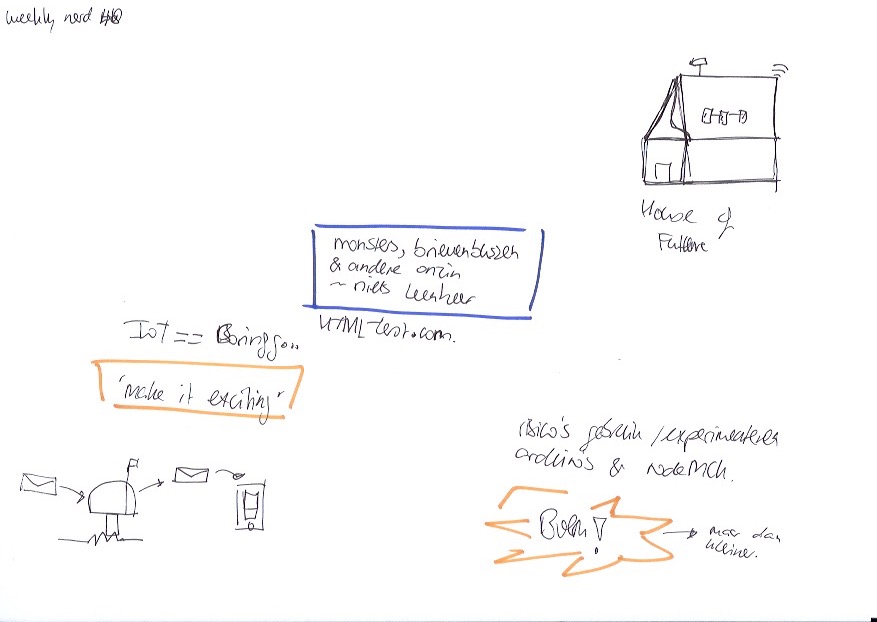 weekly nerd
House of
Future
monsters, brievenbussen
& andere onzin
~ niels leenheer
HTML-test.com.
IoT == Boring
"make it exciting"
risico's gebruik / experimenteren
arduino's & nodeMCU.
Boem!
maar dan
kleiner.